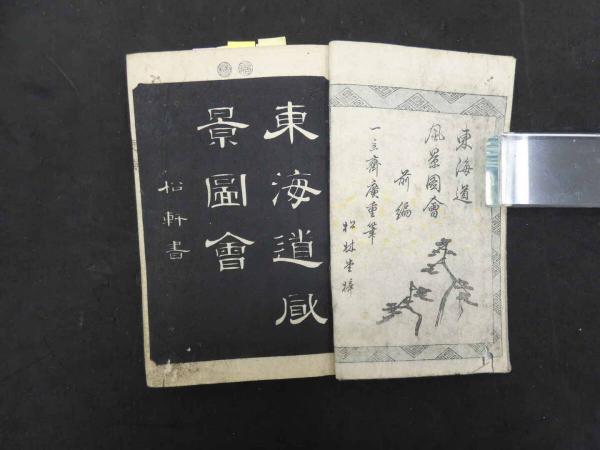 東海道
風景圖會
前編
一立齋廣重筆
松林堂梓
東海道風
景圖會
松軒書